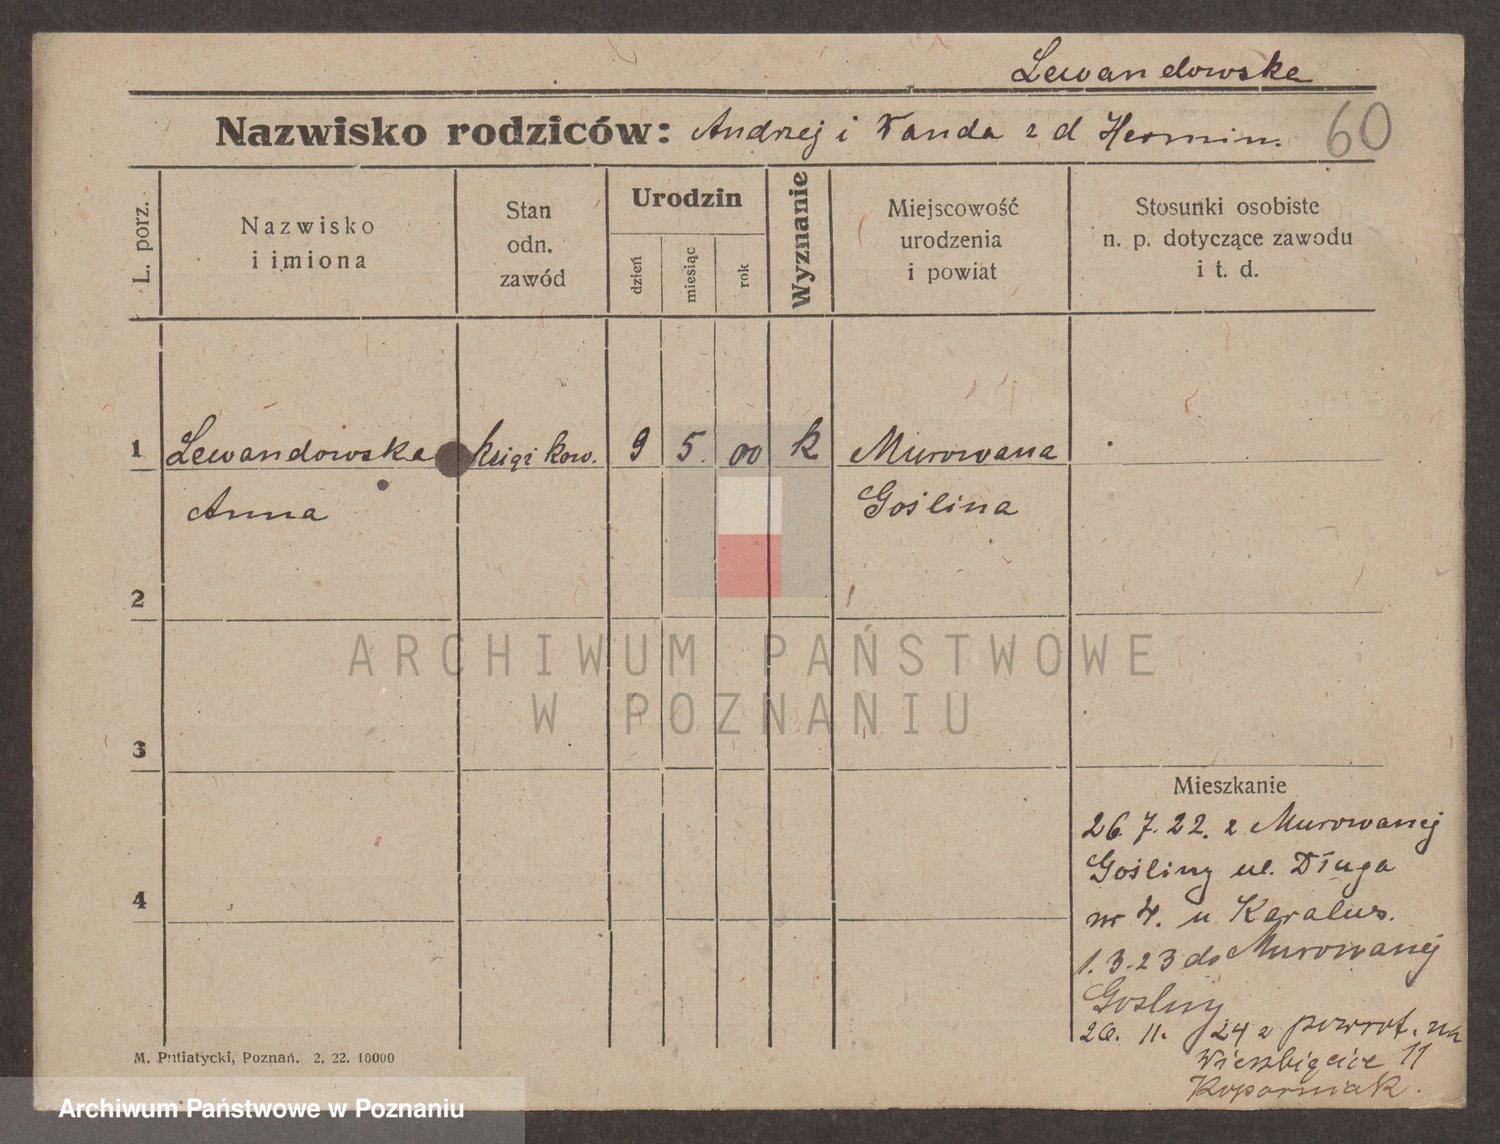 Lewandowska
Nazwisko rodziców: Andrzej i Wanda z d Hermin.
60
L. porz.
Nazwisko
i imiona
Stan
odn.
zawód
Urodzin
dzień
miesiąc
rok
Wyznanie
Miejscowość
urodzenia
i powiat
Stosunki osobiste
n. p. dotyczące zawodu
i t. d.
1 Lewandowska księż kow. 9 5. 00 k Murowana
Anna Goślina
2
ARCHIWUM PAŃSTWOWE
W POZNANIU
3
Mieszkanie
26. 7. 22. z Murowanej
Gośliny ul. Długa
nr 4. u Karalus.
4
1. 3. 23 do Murowanej
Gośliny
26. 11. 24 z powrot. na
Wierzbięcice 11
M. Putiatycki, Poznań. 2. 22. 10000
Archiwum Państwowe w Poznaniu